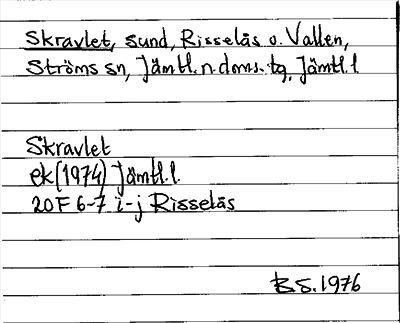 Skravlet, sund, Risselås o. Vallen,
Ströms sn, Jämtl. n. doms. tg, Jämtl. l
Skravlet
ek (1974) Jämtl. l.
20F 6-7 i-j Risselås
B.S. 1976